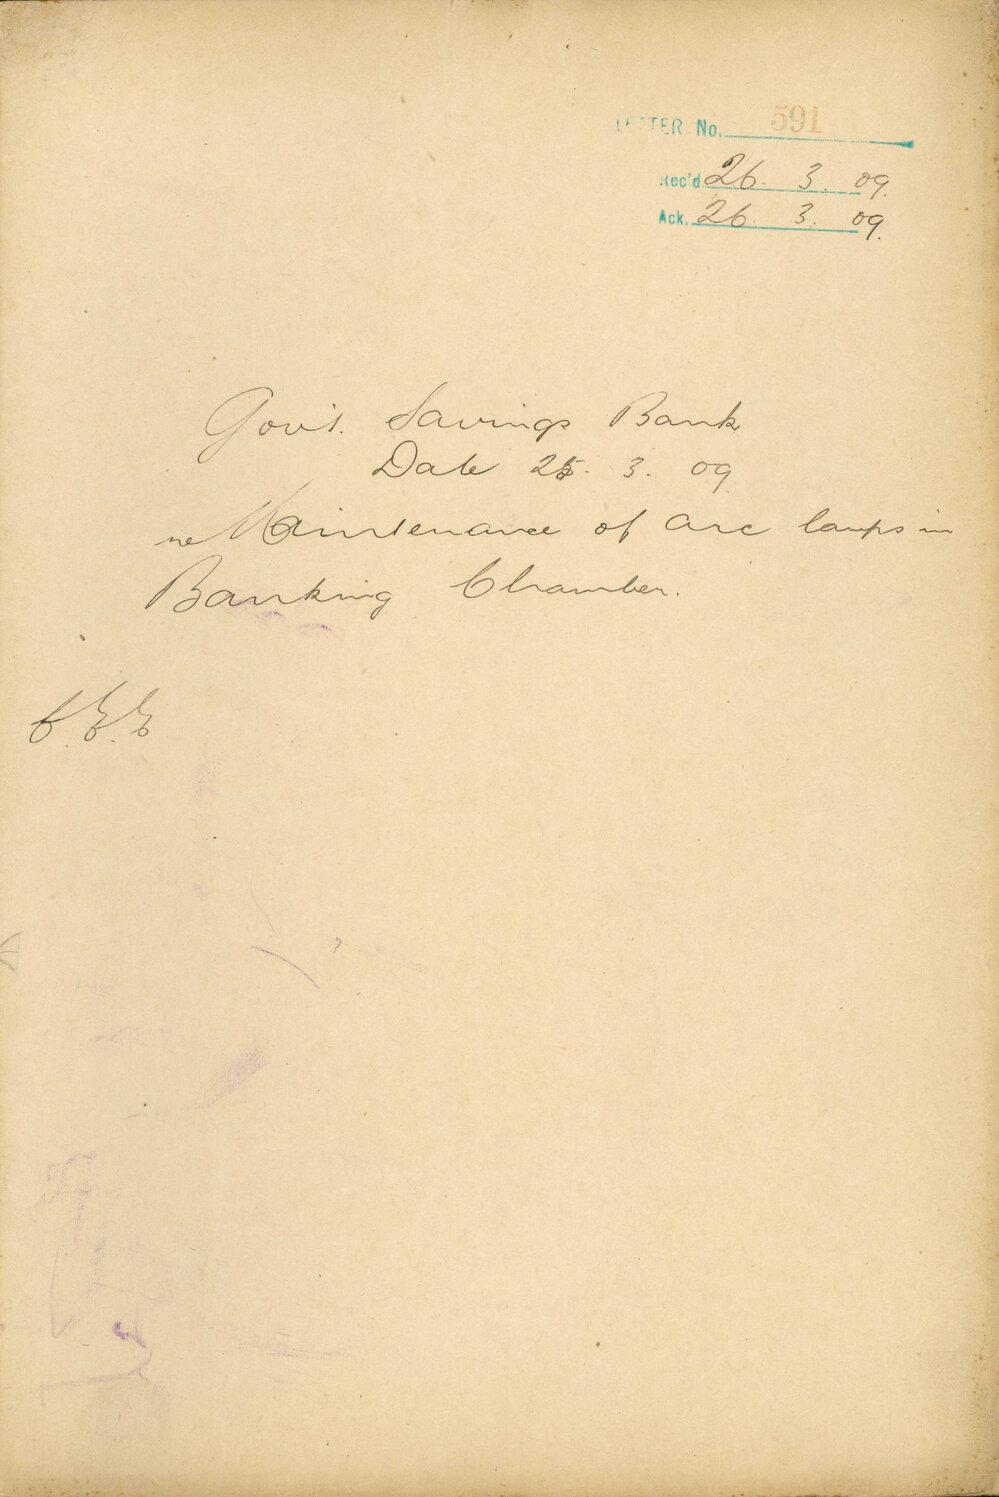 LETTER No. 591
Rec'd 26. 3. 09.
Ack. 26. 3. 09.
Gov't. Savings Bank
Date 25. 3. 09
re Maintenance of arc lamps in
Banking Chamber.
C.E.E